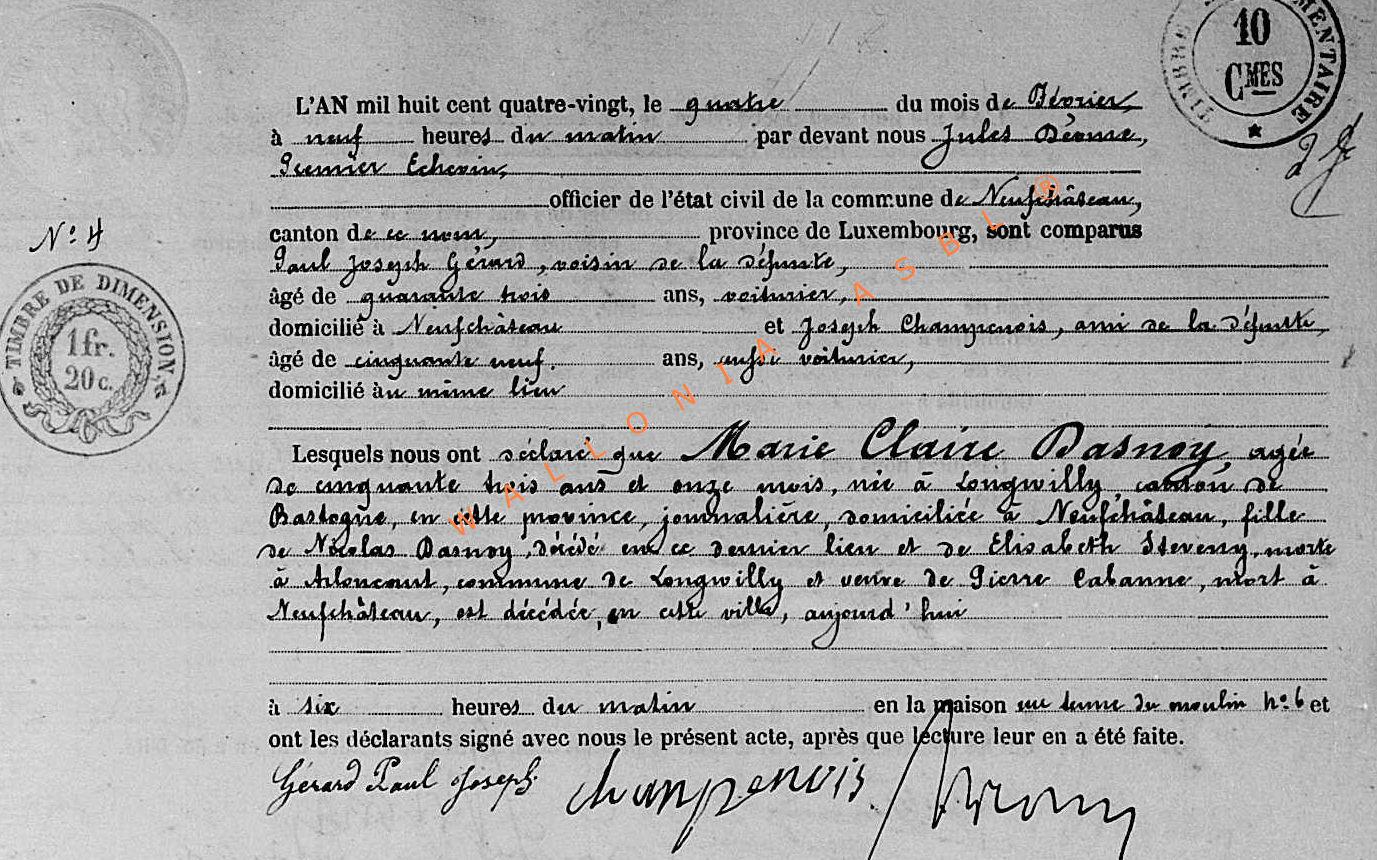 TIMBRE MENTAIRE
10
CMES
L'AN mil huit cent quatre-vingt, le quatre du mois de Février,
à neuf heures du matin par devant nous Jules
Premier Echevin,
officier de l'état civil de la commune de Neufchâteau,
N° 4
canton de ce nom, province de Luxembourg, sont comparus
Paul Joseph Gérard, voisin de la défunte,
âgé de quarante trois ans, voiturier,
domicilié à Neufchâteau et Joseph Champenois, ami de la défunte,
âgé de cinquante neuf ans, aussi voiturier,
domicilié au même lieu
TIMBRE DE DIMENSION
1 fr.
20 c.
Lesquels nous ont déclaré que Marie Claire Dasnoy, agée
de cinquante trois ans et onze mois, née à Longwilly, canton de
Bastogne, en cette province, journalière, domiciliée à Neufchâteau, fille
de Nicolas Dasnoy, décédé en ce dernier lieu et de Elisabeth Steveny, morte
à Arloncourt, commune de Longwilly et veuve de Pierre Cabanne, mort à
Neufchâteau, est décédée, en cette ville, aujourd'hui
à six heures du matin en la maison du moulin N° 6 et
ont les déclarants signé avec nous le présent acte, après que lecture leur en a été faite.
Gérard Paul Joseph Champenois
WALLONIA ASBL ®